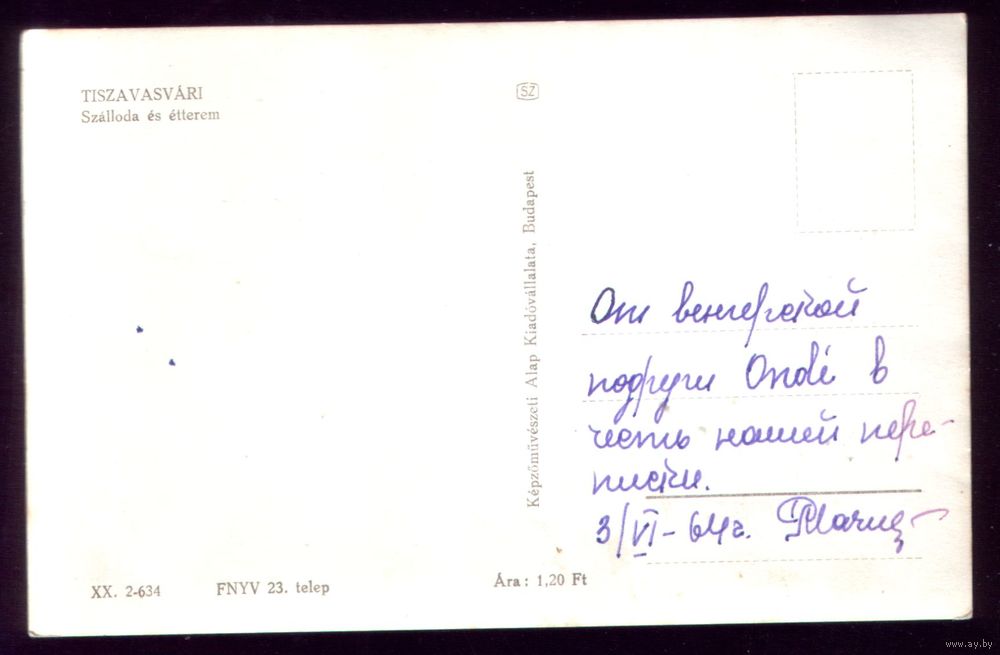 TISZAVASVÁRI
Szálloda és étterem
SZ
Képzőművészeti Alap Kiadóvállalata, Budapest
От венгерской
подруги Ondi в
честь нашей пере-
писки.
3/VI-64г.
XX. 2-634
FNYV 23. telep
Ára: 1,20 Ft
www.ay.by